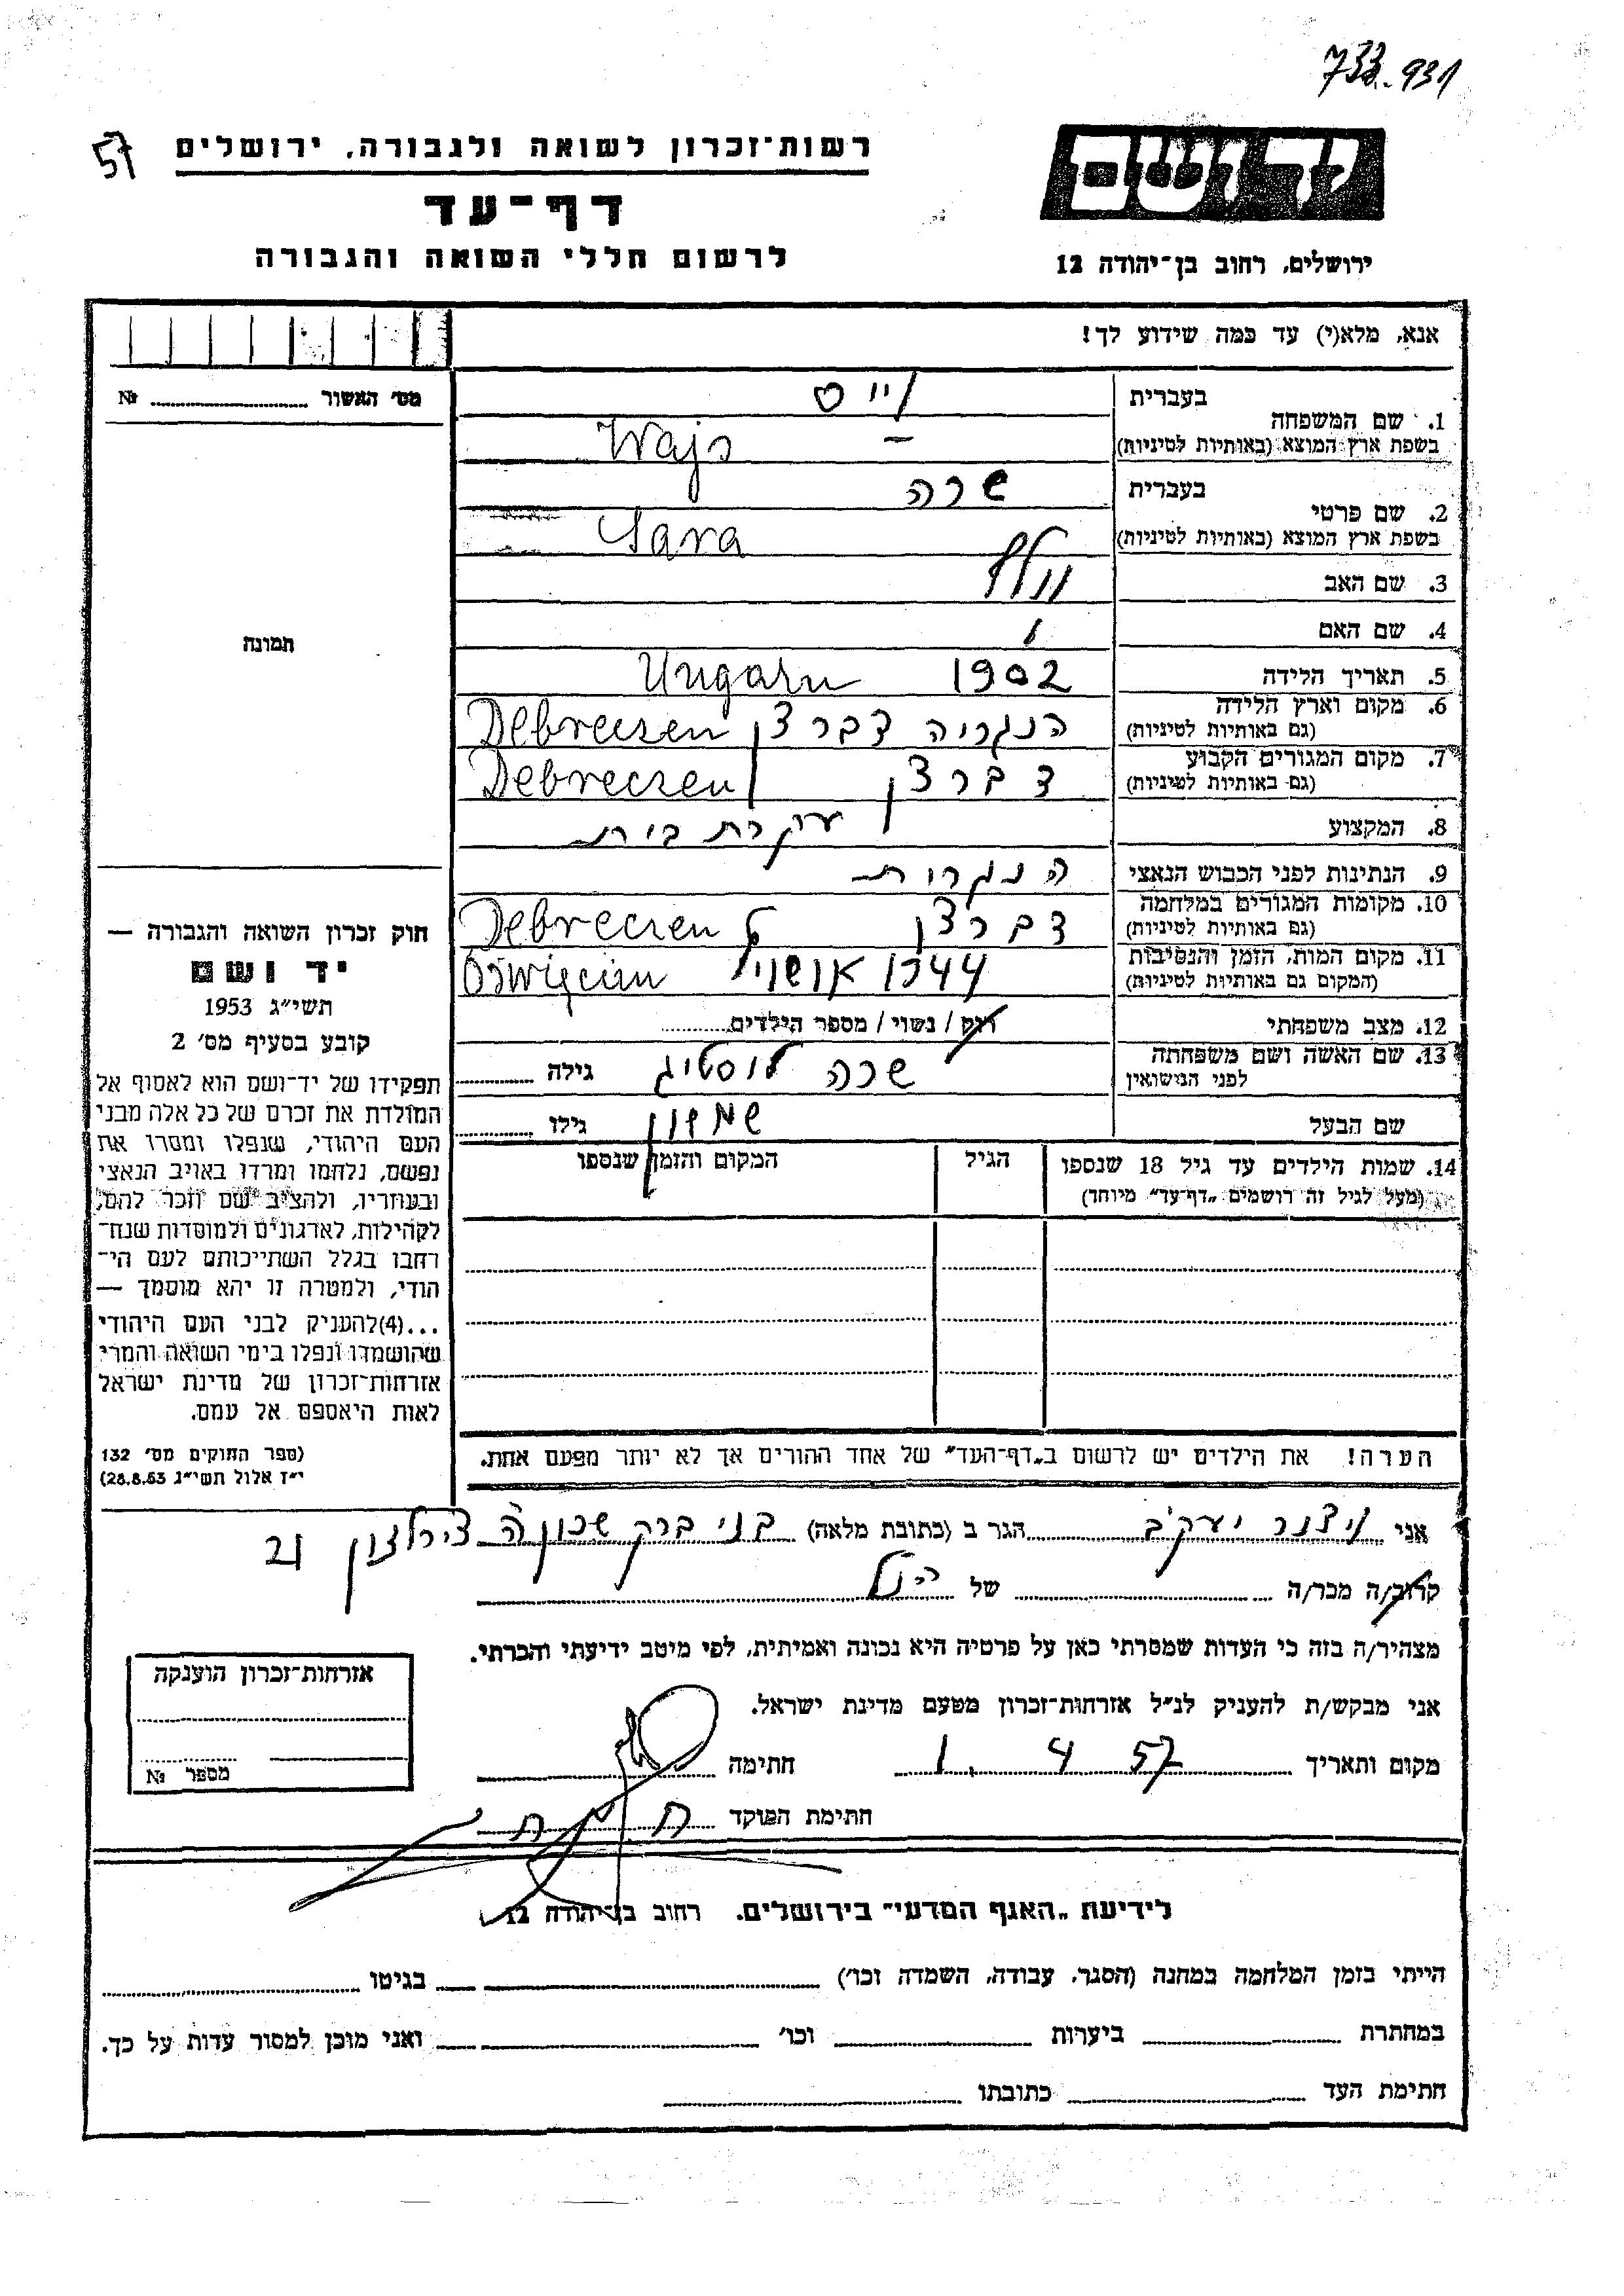 733..931
57
רשות־זכרון לשואה ולגבורה, ירושלים
יד ושם
דף־עד
לרשום חללי השואה והגבורה
ירושלים, רחוב בן־יהודה 12
אנא, מלא(י) עד כמה שידוע לך!
מס׳ האשור № 
1. שם המשפחה
בעברית
וייס
בשפת ארץ המוצא (באותיות לטיניות)
Wajs
2. שם פרטי
בעברית
שרה
בשפת ארץ המוצא (באותיות לטיניות)
Sara
3. שם האב
וולף
4. שם האם
תמונה
5. תאריך הלידה
1902 Ungarn
6. מקום וארץ הלידה
(גם באותיות לטיניות)
הנגריה דברצן Debreczen
7. מקום המגורים הקבוע
(גם באותיות לטיניות)
דברצן Debreczen
8. המקצוע
עקרת בית
9. הנתינות לפני הכבוש הנאצי
הנגרית
10. מקומות המגורים במלחמה
(גם באותיות לטיניות)
דברצן Debreczen
11. מקום המות, הזמן והנסיבות
(המקום גם באותיות לטיניות)
1944 אושויץ Oświęcim
12. מצב משפחתי
רוק / נשוי / מספר הילדים
13. שם האשה ושם משפחתה
לפני הנישואין
שרה לוסטיג גילה
שם הבעל
שמשון גילו
14. שמות הילדים עד גיל 18 שנספו
(מעל לגיל זה רושמים „דף־עד״ מיוחד)
הגיל
המקום והזמן שנספו
חוק זכרון השואה והגבורה —
יד ושם
תשי״ג 1953
קובע בסעיף מס׳ 2
תפקידו של יד־ושם הוא לאסוף אל
המולדת את זכרם של כל אלה מבני
העם היהודי, שנפלו ומסרו את
נפשם, נלחמו ומרדו באויב הנאצי
ובעוזריו, ולהציב שם וזכר להם,
לקהילות, לארגונים ולמוסדות שנח־
רחבו בגלל השתייכותם לעם הי־
הודי, ולמטרה זו יהא מוסמך —
...(4)להעניק לבני העם היהודי
שהושמדו ונפלו בימי השואה והמרי
אזרחות־זכרון של מדינת ישראל
לאות היאספם אל עמם.
(ספר החוקים מס׳ 132
י״ז אלול תשי״ג 28.8.53)
הערה! את הילדים יש לרשום ב„דף־העד״ של אחד ההורים אך לא יותר מפעם אחת.
אני ויצנר יעקב הגר ב (כתובת מלאה) בני ברק שכונה 21
קרוב/ה מכר/ה של הנ״ל
מצהיר/ה בזה כי העדות שמסרתי כאן על פרטיה היא נכונה ואמיתית, לפי מיטב ידיעתי והכרתי.
אני מבקש/ת להעניק לנ״ל אזרחות־זכרון מטעם מדינת ישראל.
מקום ותאריך 1. 4 57 חתימה
חתימת הפוקד
אזרחות־זכרון הוענקה
מספר №
לידיעת „האגף המדעי״ בירושלים. רחוב בן־יהודה 12
הייתי בזמן המלחמה במחנה (הסגר, עבודה, השמדה וכו׳) בגיטו
במחתרת ביערות וכו׳ ואני מוכן למסור עדות על כך.
חתימת העד כתובתו